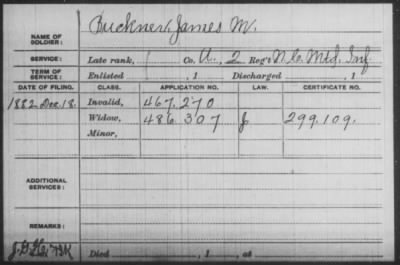 NAME OF SOLDIER: Buckner, James M.
SERVICE: Late rank, Co. A, 2 Reg't N.C. Mtd. Inf.
TERM OF SERVICE: Enlisted , 1 Discharged , 1
DATE OF FILING. CLASS. APPLICATION NO. LAW. CERTIFICATE NO.
1882 Dec. 18. Invalid, 467.270
Widow, 486.307 J 299.109.
Minor,
ADDITIONAL SERVICES:
REMARKS:
Died , 1 , at